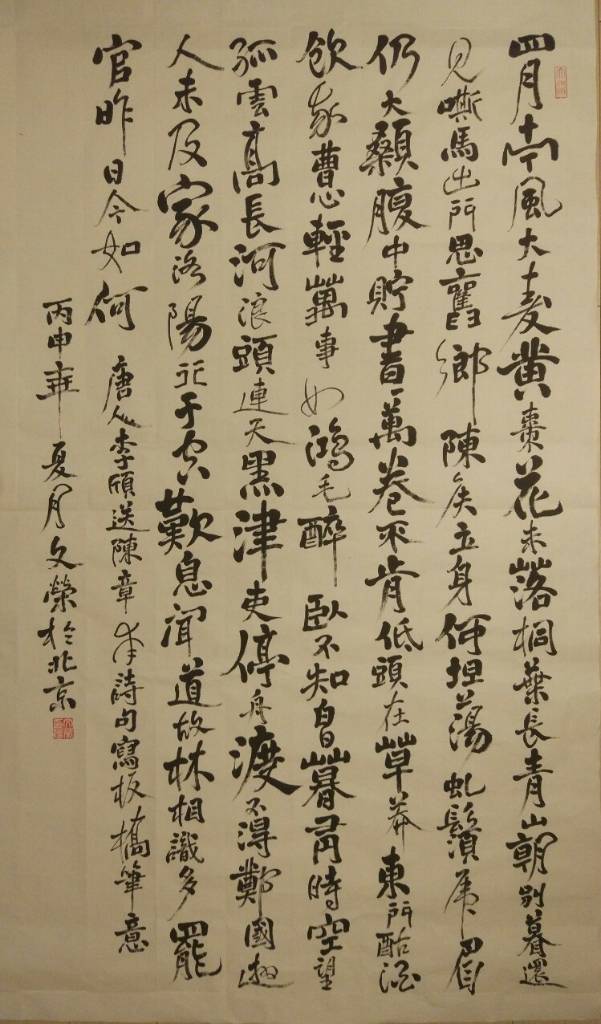 四月南風大麥黃棗花未落桐葉長青山朝別暮還
見嘶馬出門思舊鄉陳侯立身何坦蕩虬鬚虎眉
仍大顙腹中貯書一萬卷不肯低頭在草莽東門酤酒
飲我曹心輕萬事如鴻毛醉臥不知白日暮有時空望
孤雲高長河浪頭連天黑津吏停舟渡不得鄭國遊
人未及家洛陽行子空歎息聞道故林相識多罷
官昨日今如何
唐人李頎送陳章甫詩句寫板橋筆意
丙申年夏月文榮於北京